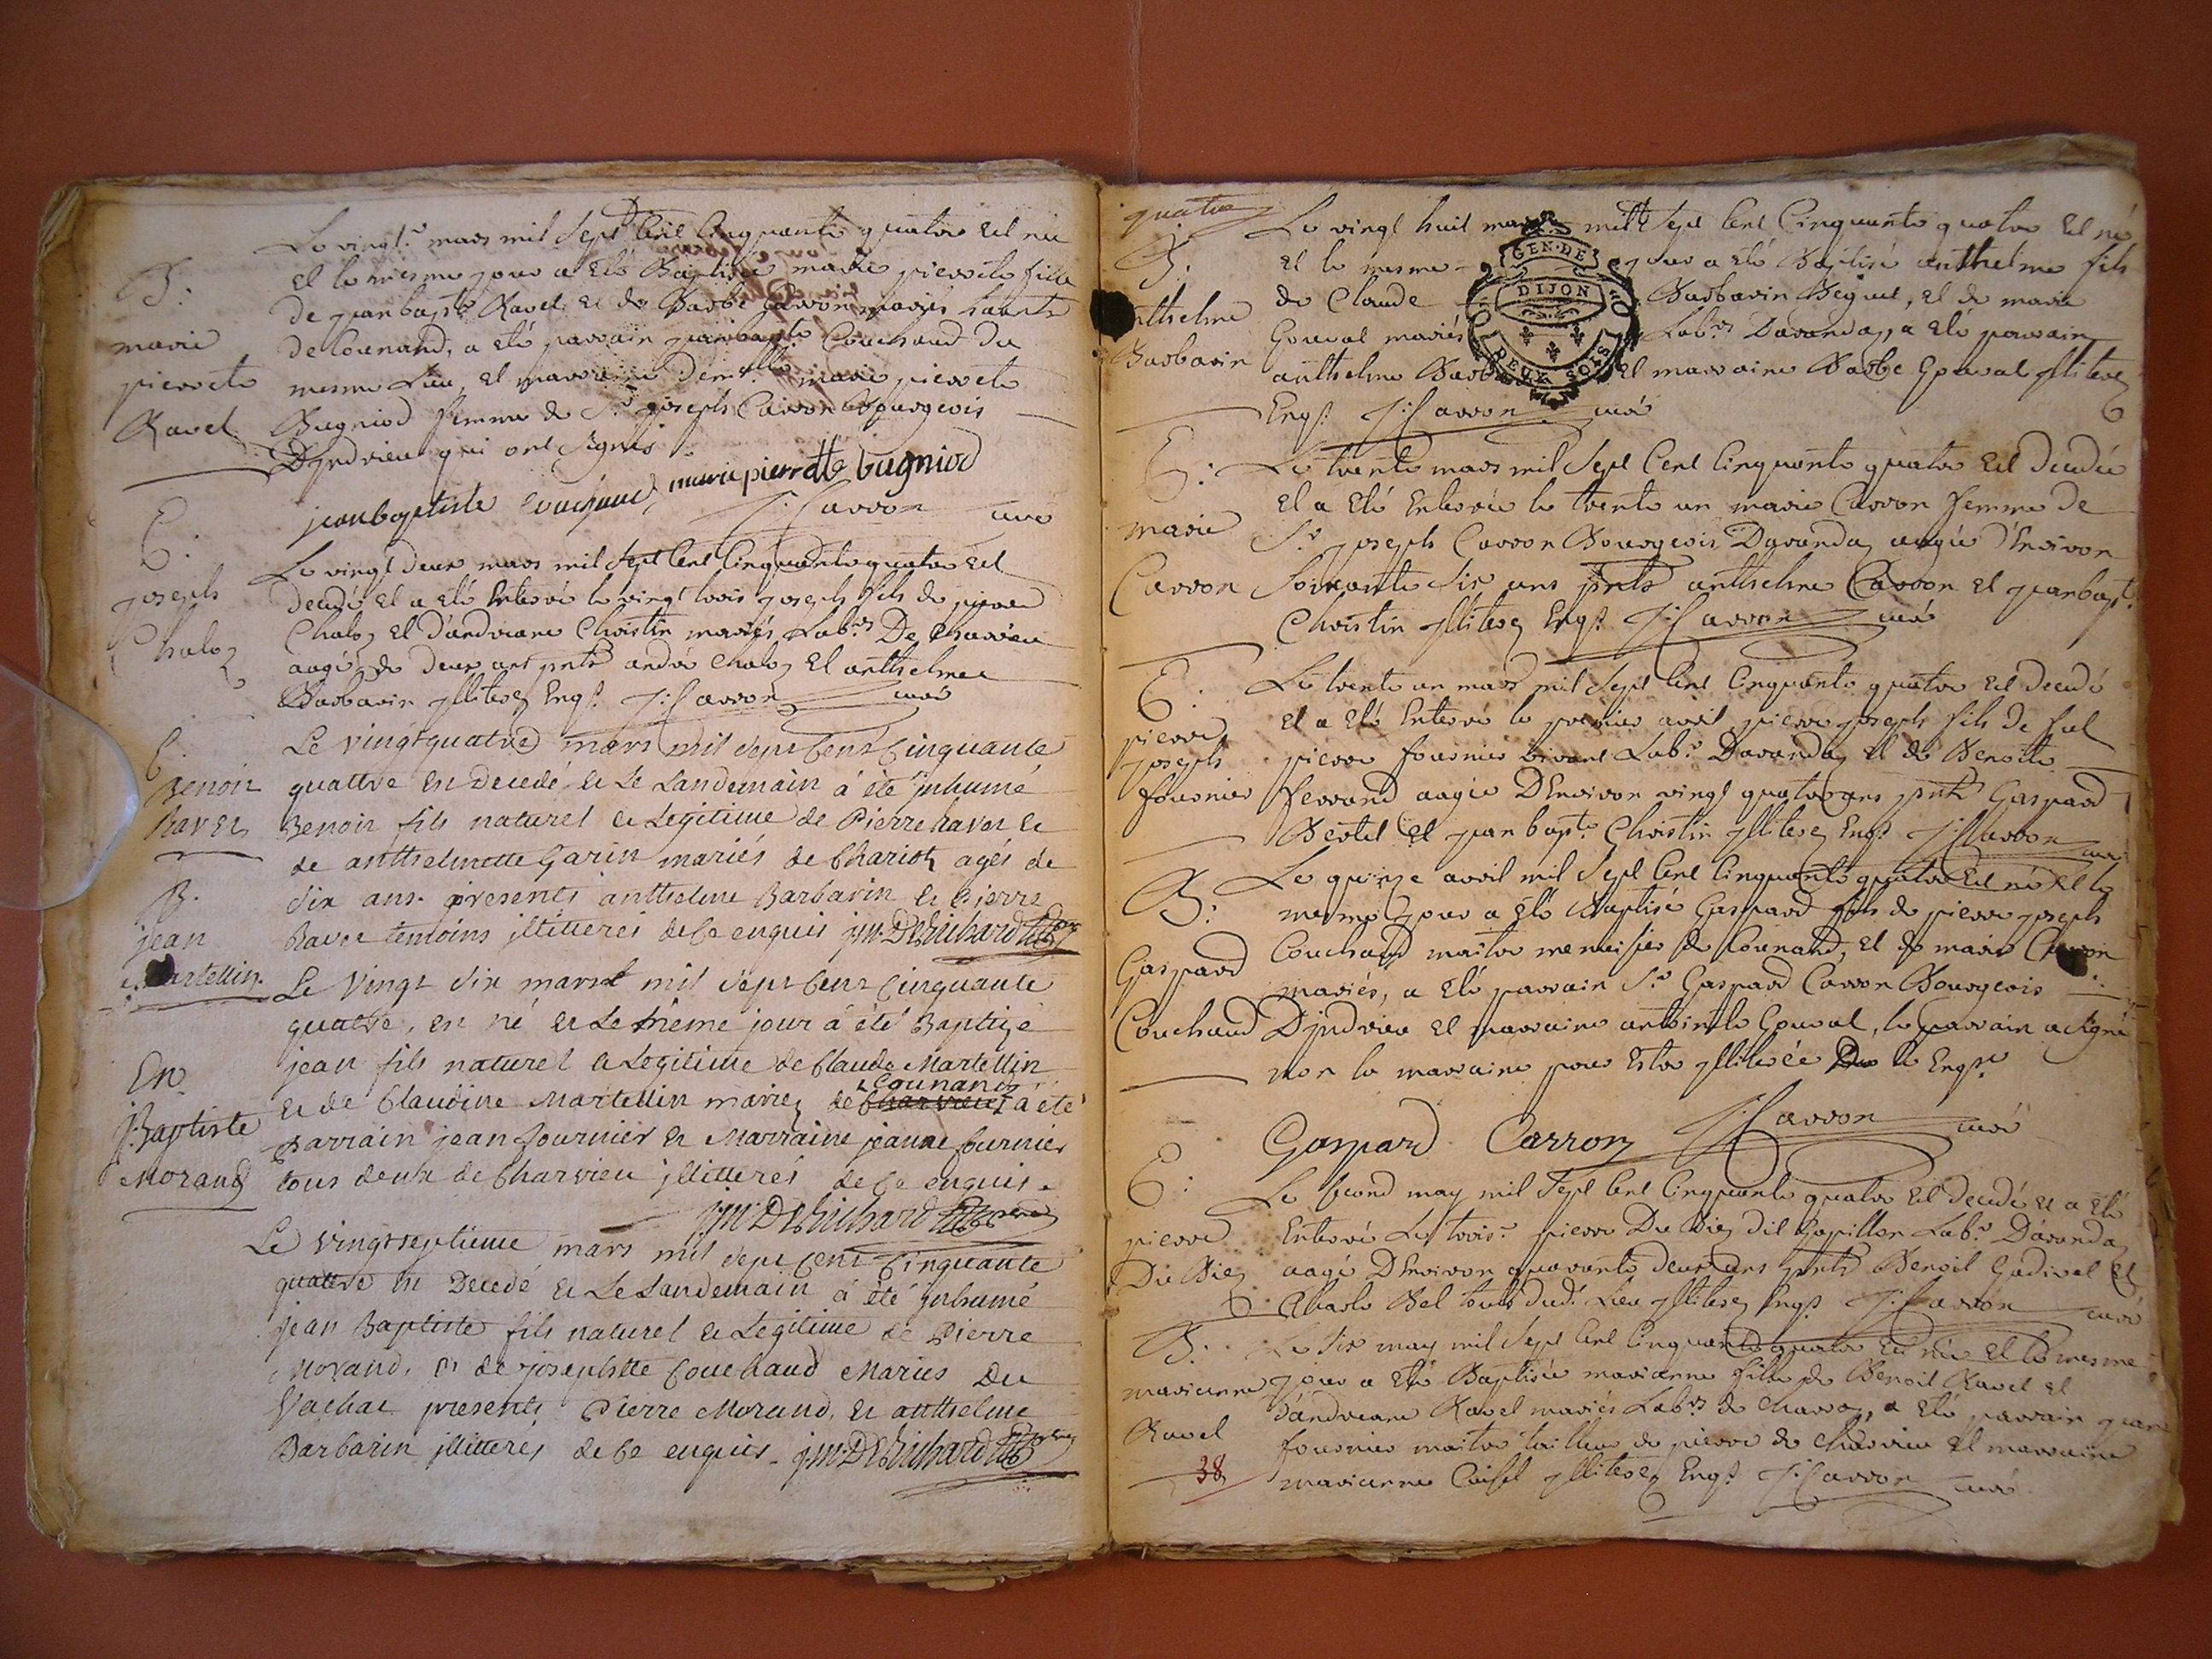 Le vingt.e mars mil Sept Cent Cinquante quatre est née
B:
et le mesme jour a Eté Baptisée marie pierrete fille
de jean bapte Ravet et de Barbe mariés
marie
de Counand, a eté parrain jean bapte Couchaud du
pierrete
mesme Lieu, et marraine Dem.lle marie pierrete
Ravet
Bugniod femme de Sr joseph Carron Bourgeois
Dyndrieu qui ont signés
jean baptiste Couchaud marie pierrette bugniod
J: Carron curé
E:
Le vingt deux mars mil Sept Cent Cinquante quatre est
joseph
decedé et a eté Enterré le vingt trois joseph fils de pierre
Chaloz
Chaloz et d'andreane Christin mariés Lab.rs De Charvieu
aagé de deux ans pnts andré Chaloz et anthelme
Barbarin jlliterez Enqs. J: Carron curé
E.
Le vingt quatre mars mil sept cent cinquante
Benoir
quattre est Decedé et Le Landemain á été jnhumé
Raver
Benoir fils naturel et Legitime de Pierre Raver et
de anthelmette Garin mariés de Chariots agés de
B.
dix ans. presents anthelme Barbarin et Pierre
jean
Raver temoins jllitterés de ce enquis j.m. Dehuihard
Martellin.
Le vingt six mars mil sept cent cinquante
quattre, est né et Le même jour á été Baptizé
jean fils naturel et Legitime de Claude Martellin
En
Counand
et de Claudine Martellin mariez de Charvieu á été
J. Baptiste
parrain jean fournier et Marraine jeanne fournier
Morand
tous deux de Charvieu jllitterés de ce enquis.
j.m. Dehuihard
Le vingt septieme mars mil sept cent cinquante
quattre est Decedé et Le Landemain á été jnhumé
jean Baptiste fils naturel et Legitime de Pierre
Morand, et de josephtte Couchaud Mariés Du
Vachat presents Pierre Morand, et anthelme
Barbarin jllitterés de ce enquis. j.m. Dehuihard
quatre
Le vingt huit mars mil Sept Cent Cinquante quatre est né
B:
et le mesme jour a eté Baptisé anthelme fils
GEN. DE
DIJON
DEUX SOLS
anthelme
de Claude Barbarin Beguet, et de marie
Barbarin
Gouval mariés Lab.rs Davandaz, a eté parrain
anthelme et marraine Barbe Gouval jlliterez
Enqs. J: Carron curé
E:
Le trente mars mil Sept Cent Cinquante quatre est decedée
et a eté Enterrée le trente un marie Carron femme de
marie
Sr. joseph Carron Bourgeois Davandaz aagée d'Environ
Carron
Soixante six ans pnts anthelme Carron et jean bapt.
Christin jlliterez Enqs. J: Carron curé
E:
Le trente un mars mil Sept Cent Cinquante quatre est decedé
pierre
et a eté Enterré le premier avril pierre joseph fils de fut
joseph
pierre fournier vivant Lab.r Davandaz et de Benoite
fournier
ferrand aagé D'Environ vingt quatre ans pnts Gaspard
Bertet et jean bapte Christin jlliterez Enqs J: Carron curé
B:
Le quinze avril mil Sept Cent Cinquante quatre est né et le
mesme jour a eté Baptisé Gaspard fils de pierre joseph
Gaspard
Couchaud maitre menuisier de Counand, et de marie Carron
mariés, a eté parrain Sr Gaspard Carron Bourgeois
Couchaud
Dyndrieu et marraine antoinete Gouval, le parrain a signé
non la marraine pour Estre jlliterée De ce Enqse
Gaspard Carron J: Carron curé
E:
Le second may mil Sept Cent Cinquante quatre est decedé et a eté
pierre
Enterré Le trois.e pierre Du Biez dit Lab.r Davandaz
Du Biez
aagé D'Environ quarante deux ans pnts Benoit Gadivet et
Charle Bel tous dud. Lieu jlliterez Enqs J: Carron curé
B:
Le six may mil Sept Cent Cinquante quatre est née et le mesme
marianne
jour a eté Baptisée marianne fille de Benoit Ravet et
d'andreane Ravet mariés Lab.rs de Charvoz, a eté parrain jean
Ravet
fournier maitre tailleur de pierre de Charvieu et marraine
38
marianne jlliterez Enqs J: Carron curé